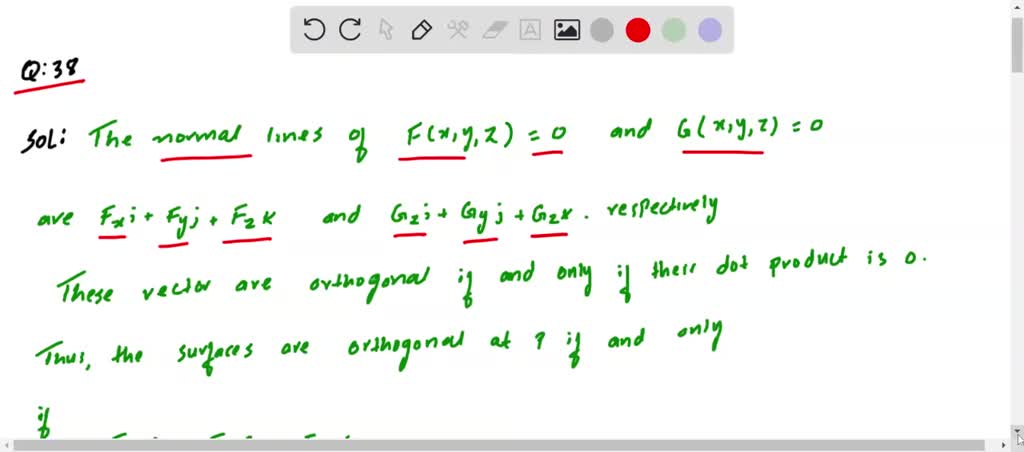 Q:38
SOL: The normal lines of F(x,y,z) = 0 and G(x,y,z) = 0
are Fxi + Fyj + Fzk and Gzi + Gyj + Gzk. respectively
These vector are orthogonal if and only if their dot product is 0.
Thus, the surfaces are orthogonal at P if and only
if